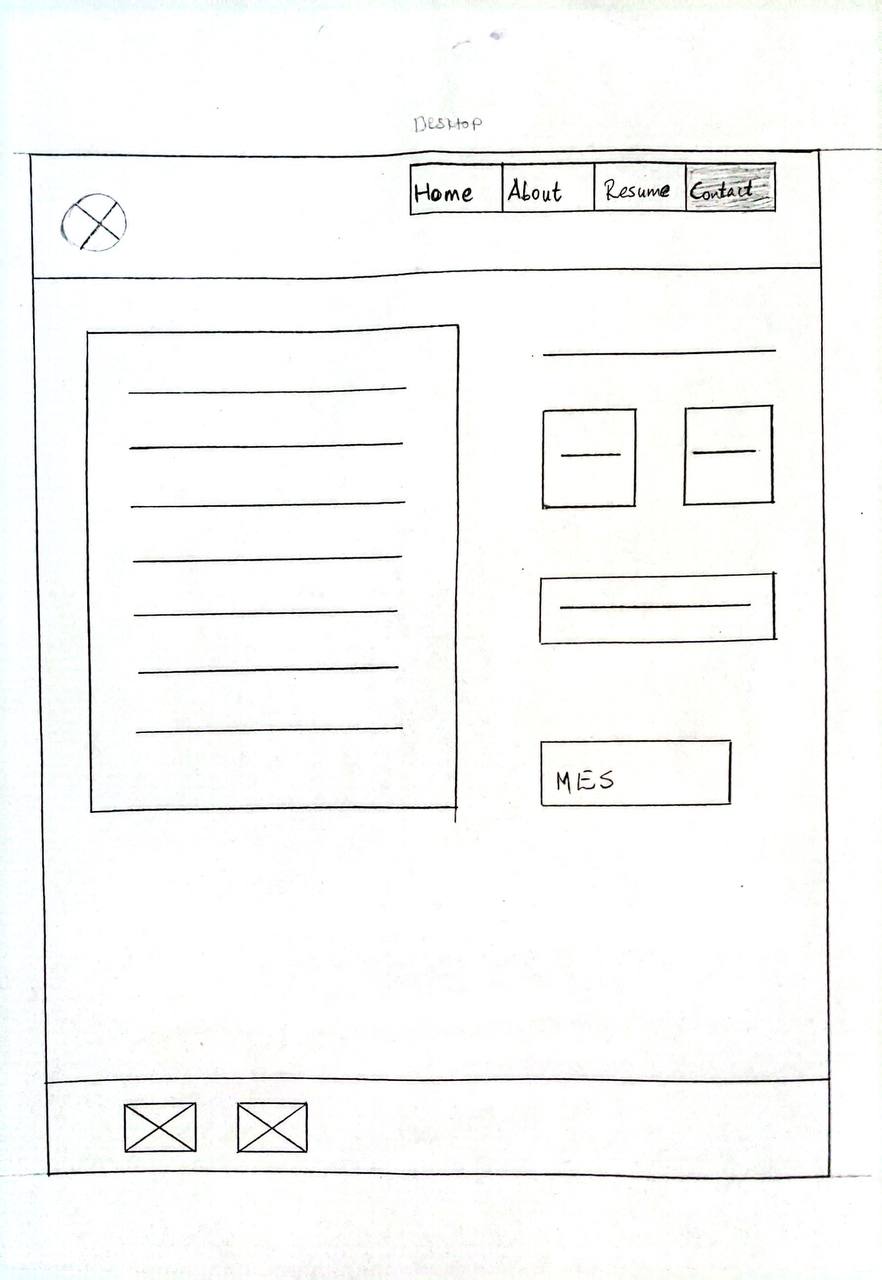 Desktop
Home About Resume Contact
MES